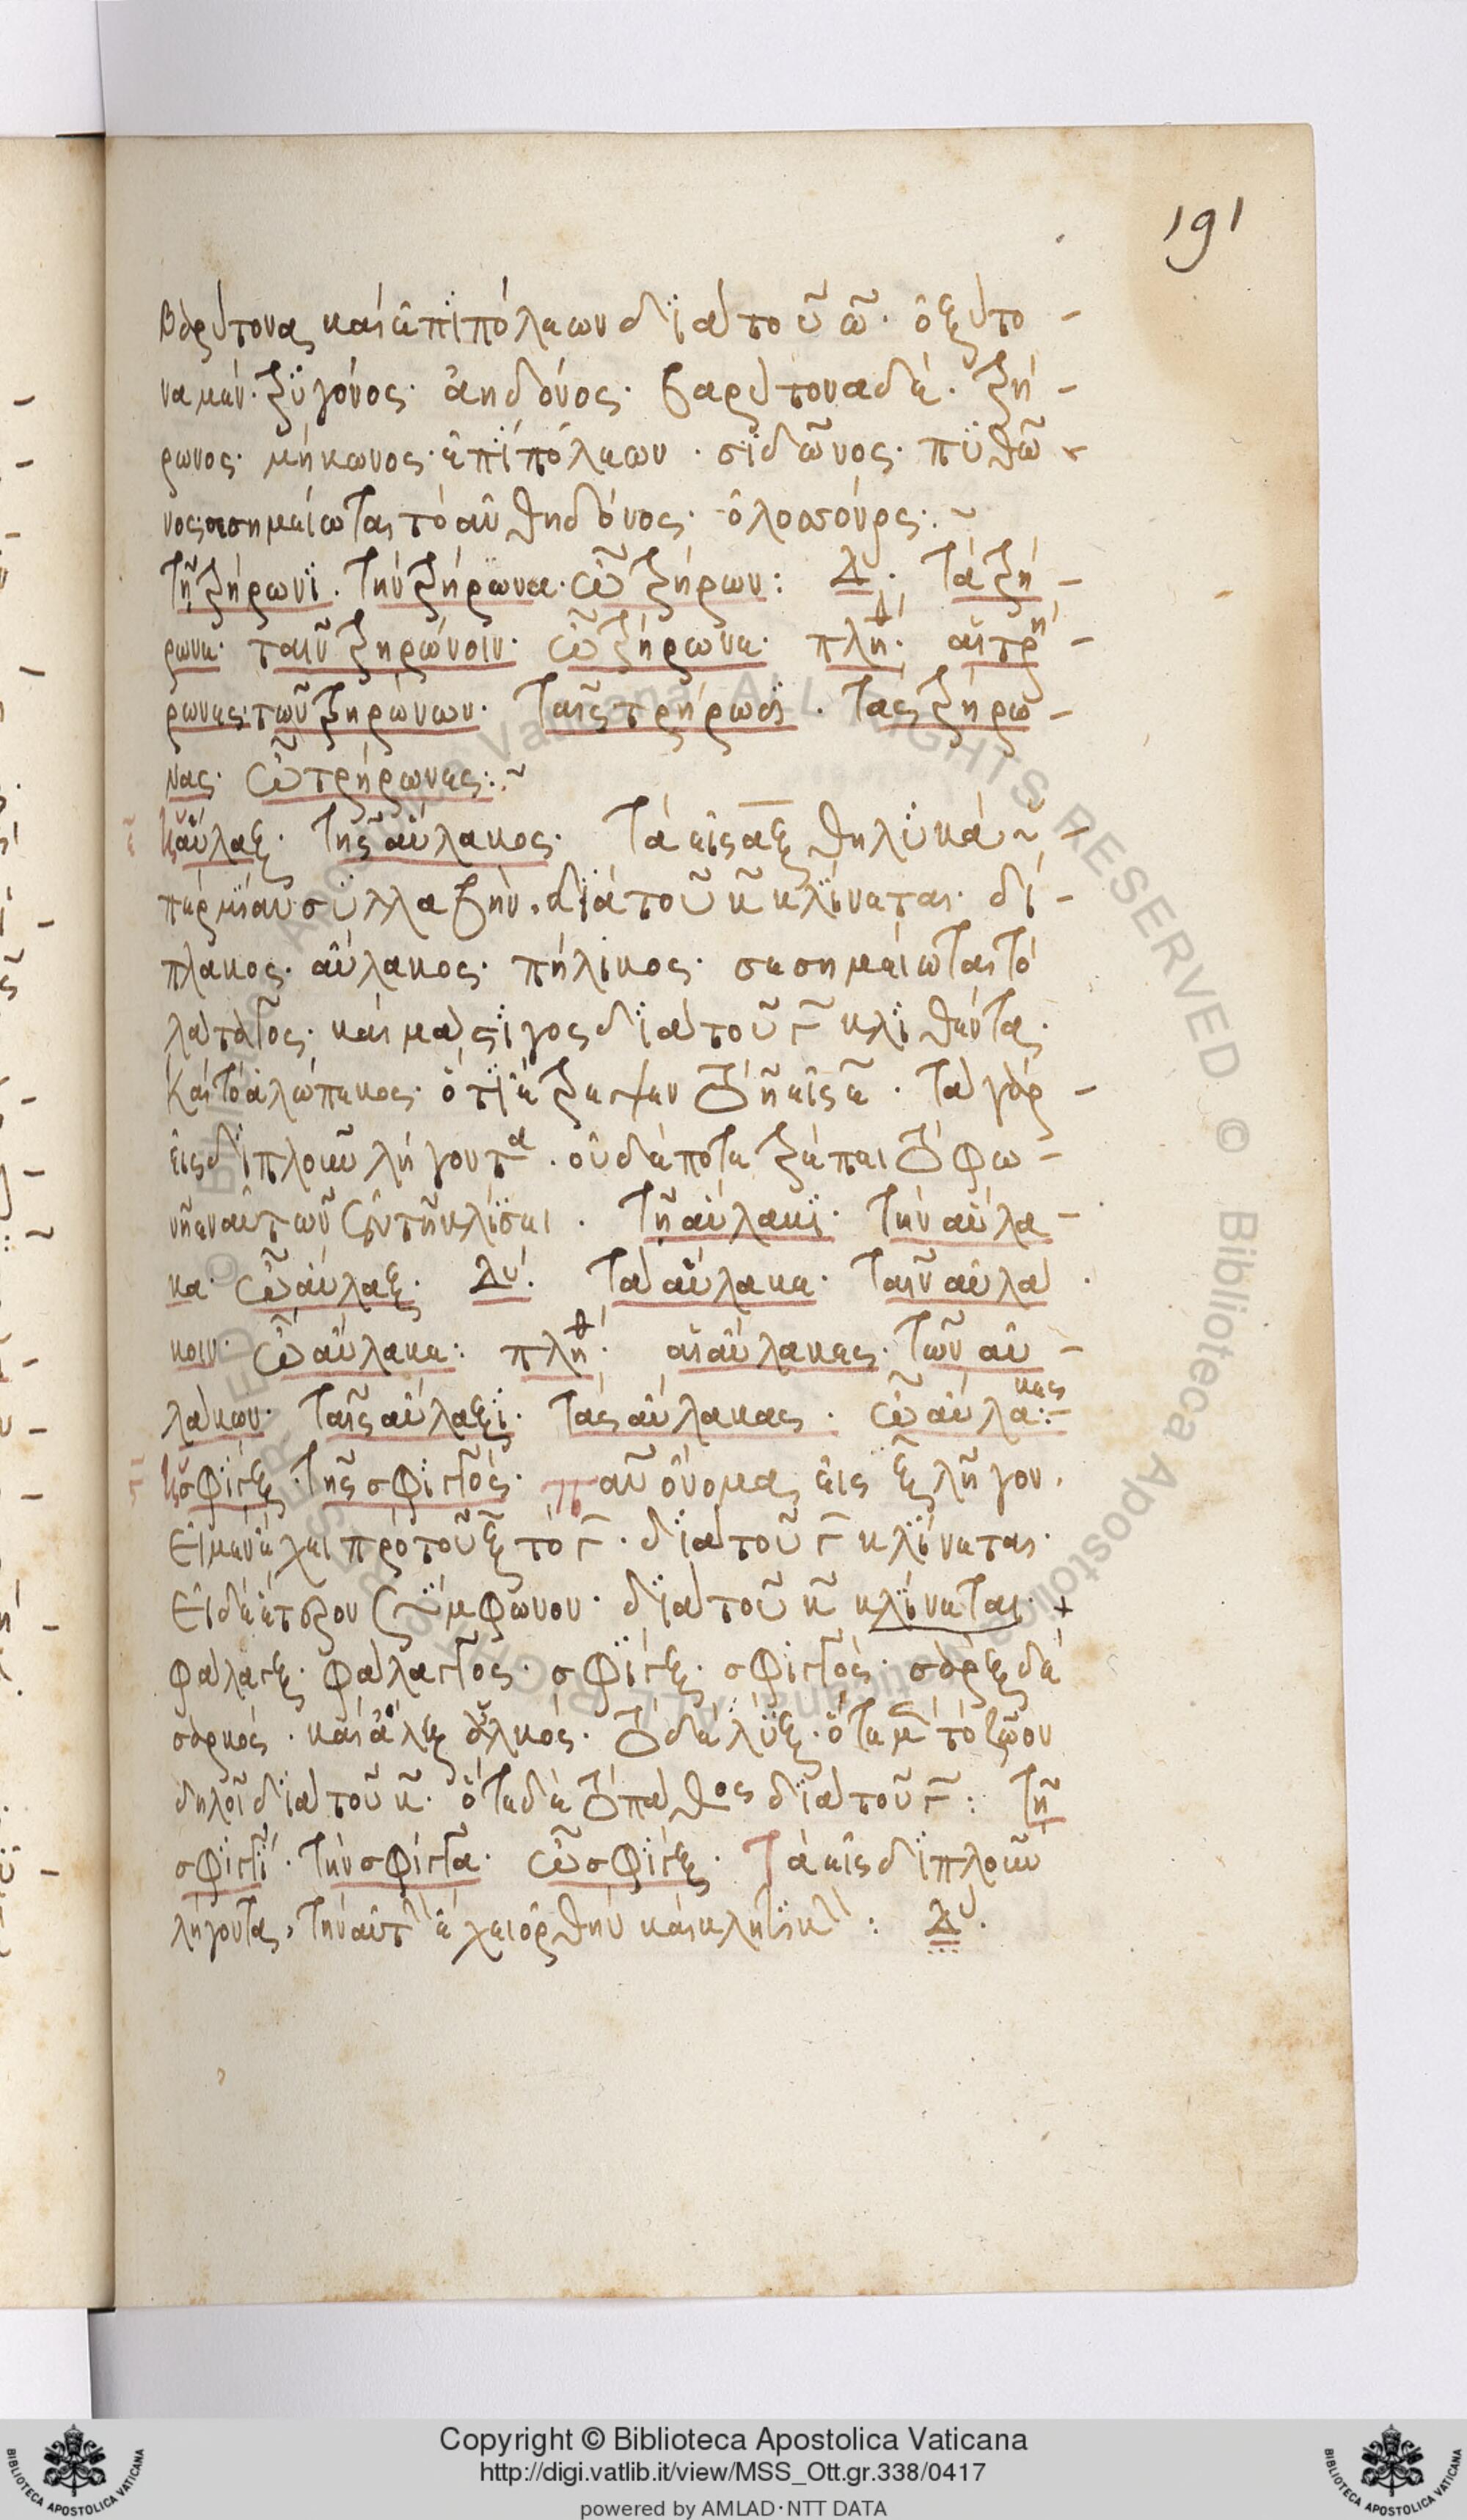 191
βαρύτονα καὶ ἐπὶ πόλεων διὰ τοῦ ω̄. ὀξύτο-
να μέν. τρϋγόνος. ἀηδόνος. βαρύτονα δέ. τρή-
ρωνος. μήκωνος. ἐπὶ πόλεων. σϊδῶνος. πϋθῶ-
νος. σεσημείωται τὸ ἀνθηδόνος. ὁλοσσόνος:~
Τῆ τρήρωνϊ. τὴν τρήρωνα. ὦ τρήρων: Δ. τὰ τρή-
ρωνε. ταῖν τρηρώνοιν. ὦ τρήρωνε. πλη. αἱ τρή-
ρωνες. τῶν τρηρώνων. ταῖς τρήρωσϊ. τὰς τρήρω-
νας. ὦ τρήρωνες:~
αὖλαξ. τῆς αὔλακος. τὰ εἰς αξ θηλϋκὰ ὑ-
πὲρ μίαν σϋλλαβὴν. διὰ τοῦ κ̄ κλίνεται. δί-
πλακος. αὔλακος. πήλικος. σεσημείωται τὸ
καὶ μάστϊγος διὰ τοῦ γ̄ κλϊθέντα.
καὶ τὸ ἀλώπεκος. ὅτϊ ἔτρεψεν τὸ η̄ εἰς ε̄. τὰ γὰρ-
εἰς διπλοῦν λήγοντα. οὐδέποτε τρέπει τὸ φω-
νῆεν αὐτῶν ἐν τῆ κλίσει. Τῆ αὔλακϊ. τὴν αὔλα-
κα. ὦ αὖλαξ. Δυ. τὰ αὔλακε. ταῖν αὐλά
κοιν. ὦ αὔλακε: πλη. αἱ αὔλακες. τῶν αὐ-
λάκων. ταῖς αὔλαξϊ. τὰς αὔλακας. ὦ αὔλακες:-
σφὶγξ. τῆς σφιγγός. πᾶν ὄνομα εἰς ξ̄ λῆγον.
εἰ μὲν ἔχει πρὸ τοῦ ξ̄ τὸ γ̄. διὰ τοῦ γ̄ κλίνεται.
εἰ δὲ ἕτερον σύμφωνον. διὰ τοῦ κ̄ κλίνεται. +
φάλαγξ. φάλαγγος. σφίγξ. σφιγγός. σάρξ δὲ
σαρκός. καὶ ἄλξ ἀλκός. τὸ δὲ λϋγξ. ὅτε μὲν τὸ ζῶον
δηλοῖ διὰ τοῦ κ̄. ὅτε δὲ τὸ πάθος διὰ τοῦ γ̄: Τῆ
σφιγγϊ. τὴν σφίγγα. ὦ σφίγξ. Τὰ εἰς διπλοῦν
λήγοντα, τὴν αὐτὴν ἔχει ὀρθὴν καὶ κλητϊκὴν: Δυ.
Copyright © Biblioteca Apostolica Vaticana
http://digi.vatlib.it/view/MSS_Ott.gr.338/0417
powered by AMLAD·NTT DATA